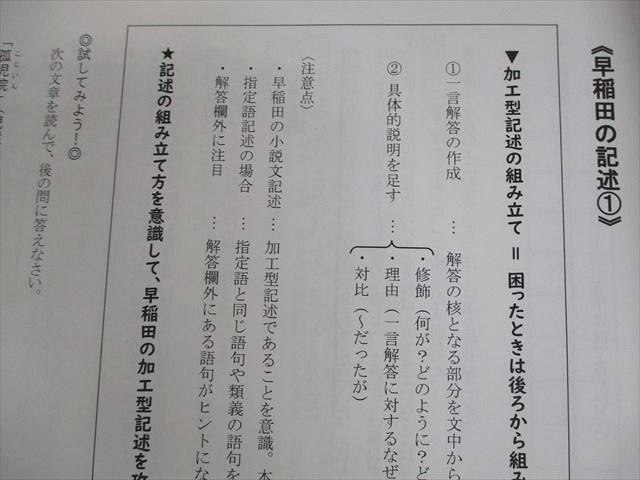 《早稲田の記述①》
▼加工型記述の組み立て ＝ 困ったときは後ろから組み
①一言解答の作成 … 解答の核となる部分を文中から
・修飾（何が？どのように？ど
② 具体的説明を足す … ・理由（一言解答に対するなぜ
・対比（～だったが）
〈注意点〉
・早稲田の小説文記述 … 加工型記述であることを意識。本
・指定語記述の場合 … 指定語と同じ語句や類義の語句を
・解答欄外に注目 … 解答欄外にある語句がヒントにな
★記述の組み立て方を意識して、早稲田の加工型記述を攻
◎試してみよう！◎
次の文章を読んで、後の問に答えなさい。
「孤児院
こじいん